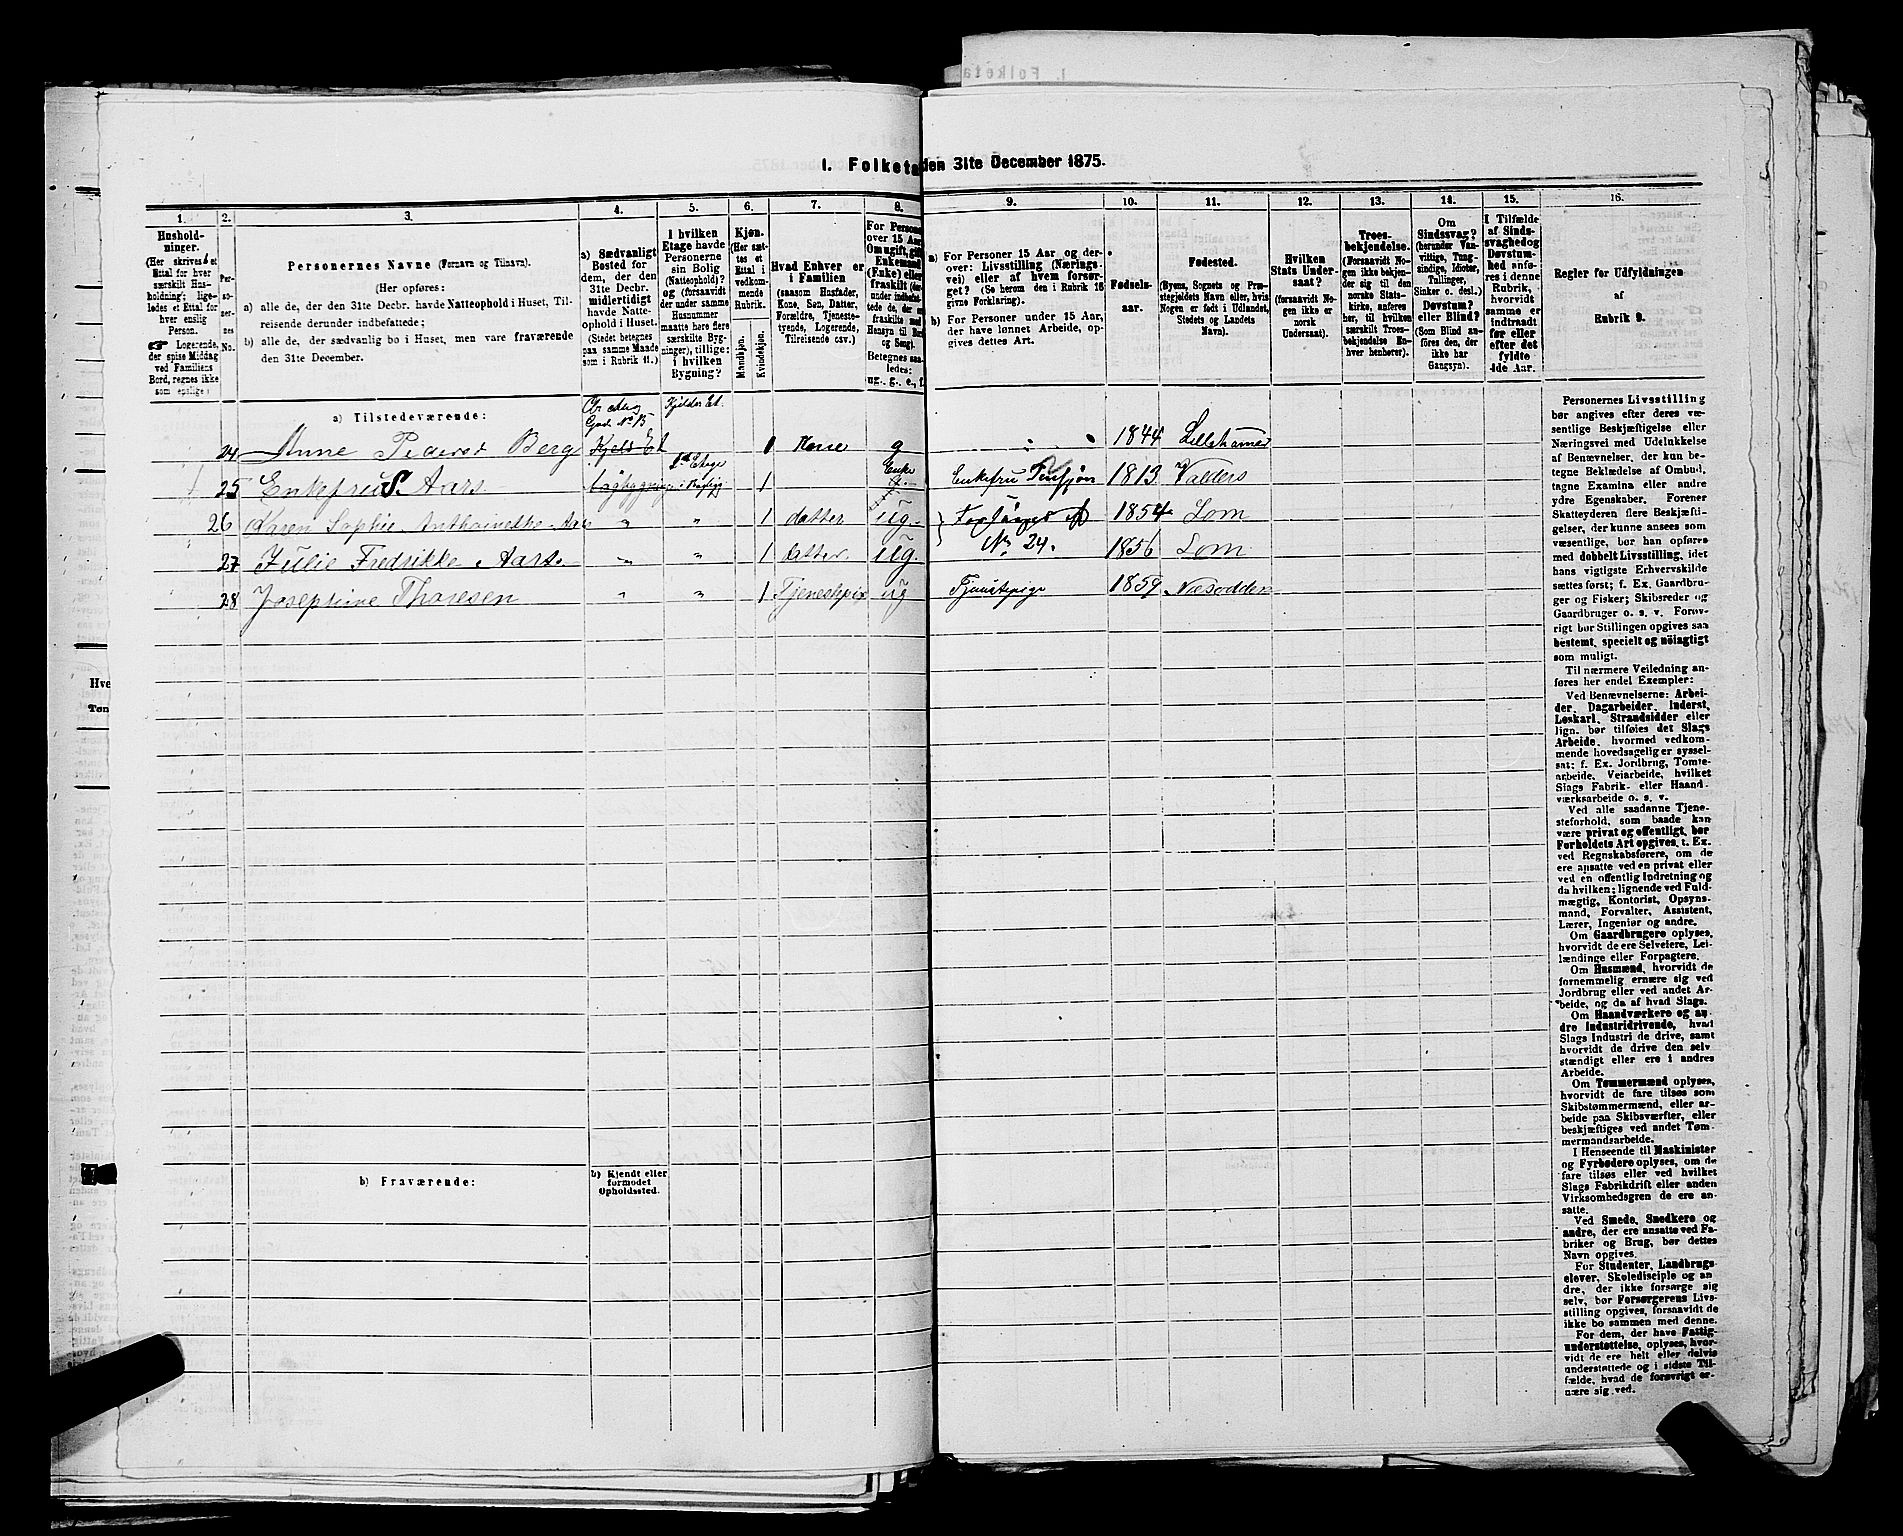 1. Folketa
den 31te December 1875.
1. 2. 3. 4. 5. 6. 7. 8. 9. 10. 11. 12. 13. 14. 15. 16.
Hushold-
ninger.
(Her skrives et
Ettal for hver
særskilt Hus-
holdning; lige-
ledes et Ettal for
hver enslig
Person.
Logerende,
der spise Middag
ved Familiens
Bord, regnes ikke
som enslige)
Per-
so-
ner-
nes
No.
Personernes Navne (Fornavn og Tilnavn).
(Her opføres:
a) alle de, der den 31te Decbr. havde Natteophold i Huset, Til-
reisende derunder indbefattede;
b) alle de, der sædvanlig bo i Huset, men vare fraværende
den 31te December.
a) Sædvanligt
Bosted for
dem, der den
31te Decbr.
midlertidigt
havde Natte-
ophold i Huset.
(Stedet betegnes
paa samme Maade
som i Rubrik 11.)
I hvilken
Etage havde
Personerne
sin Bolig
(Natteophold)?
og (forsaavidt
der under samme
Husnummer
maatte høre flere
særskilte Byg-
ninger), tillige:
i hvilken
Bygning?
Kjøn.
(Her sæt-
tes et
Ettal i
vedkom-
mende
Rubrik.
Mandkjøn.
Kvindekjøn.
Hvad Enhver er
i Familien
(saasom Husfader,
Kone, Søn, Datter,
Forældre, Tjeneste-
tyende, Logerende,
Tilreisende osv.)
For Persone
over 15 Aar
Omugift, gift
Enkemand
(Enke) eller
fraskilt
Betegnes saa-
ledes:
ug., g., e., f.
a) For Personer 15 Aar og der-
over: Livsstilling (Nærings-
vei) eller af hvem forsør-
get? (Se herom den i Rubrik 16
givne Forklaring).
b) For Personer under 15 Aar,
der have lønnet Arbeide, op-
gives dettes Art.
Fødsels-
aar.
Fødested.
(Byens, Sognets og Præ-
stegjeldets Navn eller, hvis
Nogen er født i Udlandet,
Stedets og Landets
Navn).
Hvilken
Stats Under-
saat?
(forsaavidt No-
gen ikke er
norsk
Undersaat).
Troes-
bekjendelse.
(Forsaavidt No-
gen ikke bekjen-
der sig til den
norske Stats-
kirke, anføres
her, til hvilken
særskilt Troes-
bekjendelse En-
hver henhører).
Om
Sindssvag?
(herunder Van-
vittige, Tung-
sindige, Idioter,
Tullinger,
Sinker o. desl.)
Døvstum?
eller Blind?
(Som Blind an-
føres den, der
ikke har
Gangsyn).
I Tilfælde
af Sinds-
svaghed og
Døvstum-
hed anfø-
res i denne
Rubrik,
hvorvidt
samme er
indtraadt
før eller
efter det
fyldte
4de Aar.
Regler for Udfyldningen
af
Rubrik 9.
a) Tilstedeværende:
Gad. No 13
Kjelder Et.
24 Anne Pedersd Berg Kjeld Et Kone g 1844 Lillehamer
25 Enkefru S. Aars 1 Enke Enkefru 1813 Valders
26 Karen Sophie Anthoinette Aars " " 1 datter ug. 1854 Lom
27 Julie Fredrikke Aars " " 1 datter ug No 24. 1856 Lom
28 Josephine Thoresen " " 1 Tjenestepige ug Tjenstepige 1859 Næsodden
b) Fraværende:
b) Kjendt eller
formodet
Opholdssted.
Personernes Livsstilling
bør angives efter deres væ-
sentlige Beskjæftigelse eller
Næringsvei med Udelukkelse
af Benævnelser, der kun be-
tegne Beklædelse af Ombud,
tagne Examina eller andre
ydre Egenskaber. Forener
Skatteyderen flere Beskjæfti-
gelser, der kunne ansees som
væsentlige, bør han opføres
med dobbelt Livsstilling, idet
hans vigtigste Erhvervskilde
sættes først; f. Ex. Gaardbru-
ger og Fisker; Skibsreder og
Gaardbruger o. s. v. Forøv-
rigt bør Stillingen opgives saa
bestemt, specielt og nøiagtigt
som muligt.
Til nærmere Veiledning an-
føres her endel Exempler:
Ved Benævnelserne: Arbei-
der, Dagarbeider, Inderst,
Løskarl, Strandsidder eller
lign. bør tilføies det Slags
Arbeide, hvormed vedkom-
mende hovedsagelig er syssel-
sat; f. Ex. Jordbrug, Tomte-
arbeide, Veiarbeide, hvilket
Slags Fabrik- eller Haand-
værksarbeide o. s. v.
Ved alle saadanne Tjene-
steforhold, som baade kan
være privat og offentligt, bør
Forholdets Art opgives, t. Ex.
ved Regnskabsførere, om de
ere ansatte ved en privat eller
ved en offentlig Indretning og
da hvilken; lignende ved Fuld-
mægtig, Kontorist, Opsyns-
mand, Forvalter, Assistent,
Lærer, Ingeniør og andre.
Om Gaardbrugere oplyses,
hvorvidt de ere Selveiere, Lei-
lændinge eller Forpagtere.
Om Husmænd, hvorvidt de
fornemmelig ernære sig ved
Jordbrug eller ved andet Ar-
beide, og da af hvad Slags.
Om Haandværkere og an-
dre Industridrivende, hvad
Slags Industri de drive, samt
hvorvidt de drive den selv-
stændigt eller ere i andres
Arbeide.
Om Tømmermænd oplyses,
hvorvidt de fare tilsøs som
Skibstømmermænd, eller ar-
beide paa Skibsværfter, eller
beskjæftiges ved andet Tøm-
mermandsarbeide.
I Henseende til Maskinister
og Fyrbødere oplyses, om de
fare tilsøs eller ved hvilket
Slags Fabrikdrift eller anden
Virksomhedsgren de ere an-
satte.
Ved Smede, Snedkere og
andre, der ere ansatte ved Fa-
briker og Brug, bør dettes
Navn opgives.
For Studenter, Landbrugs-
elever, Skoledisciple og an-
dre, der ikke forsørge sig
selv, bør Forsørgerens Livs-
stilling opgives, forsaavidt de
ikke bo sammen med denne.
For dem, der have Fattig-
understøttelse, oplyses, hvor-
vidt de ere helt eller delvis
understøttede og i sidste Til-
fælde, hvad de forøvrigt er-
nære sig ved.